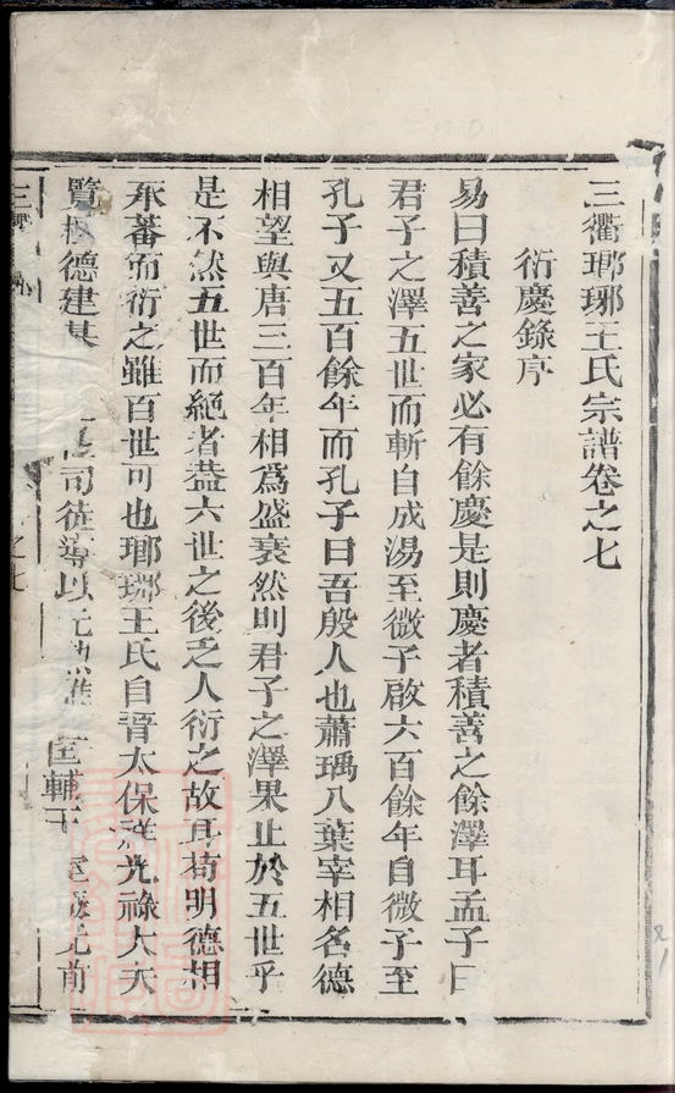 三衢瑯琊王氏宗譜卷之七
衍慶錄序
易曰積善之家必有餘慶是則慶者積善之餘澤耳孟子曰
君子之澤五世而斬自成湯至微子啟六百餘年自微子至
孔子又五百餘年而孔子曰吾殷人也蕭瑀八葉宰相名德
相望與唐三百年相爲盛衰然則君子之澤果止於五世乎
是不然五世而絕者葢六世之後乏人衍之故耳苟明德相
承蕃而衍之雖百世可也瑯琊王氏自晉太保祥光祿大夫
覽樹德建基司徒導以元匡輔王室前
之七